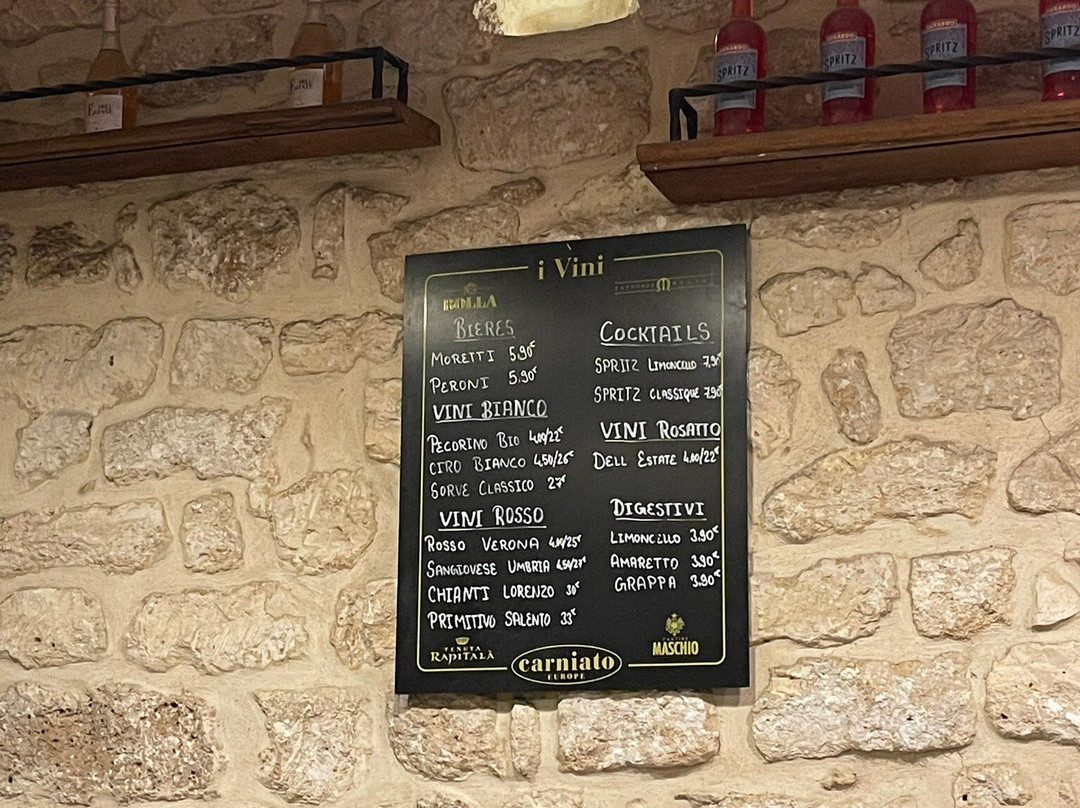 SPRITZ
SPRITZ
SPRITZ
SPRITZ
i Vini
ROLLA
BIERES
MORETTI 5,90€
PERONI 5,90€
VINI BIANCO
PECORINO BIO 4,00/22€
CIRO BIANCO 4,50/26€
SORVE CLASSICO 27€
VINI ROSSO
ROSSO VERONA 4,80/25€
SANGIOVESE UMBRIA 4,50/27€
CHIANTI LORENZO 30€
PRIMITIVO SALENTO 33€
COCKTAILS
SPRITZ LIMONCELLO 7,90€
SPRITZ CLASSIQUE 7,90€
VINI ROSATTO
DELL ESTATE 4,00/22€
DIGESTIVI
LIMONCELLO 3,90€
AMARETTO 3,90€
GRAPPA 3,90€
TENUTA
RAPITALÀ
carniato
EUROPE
CANTINE
MASCHIO